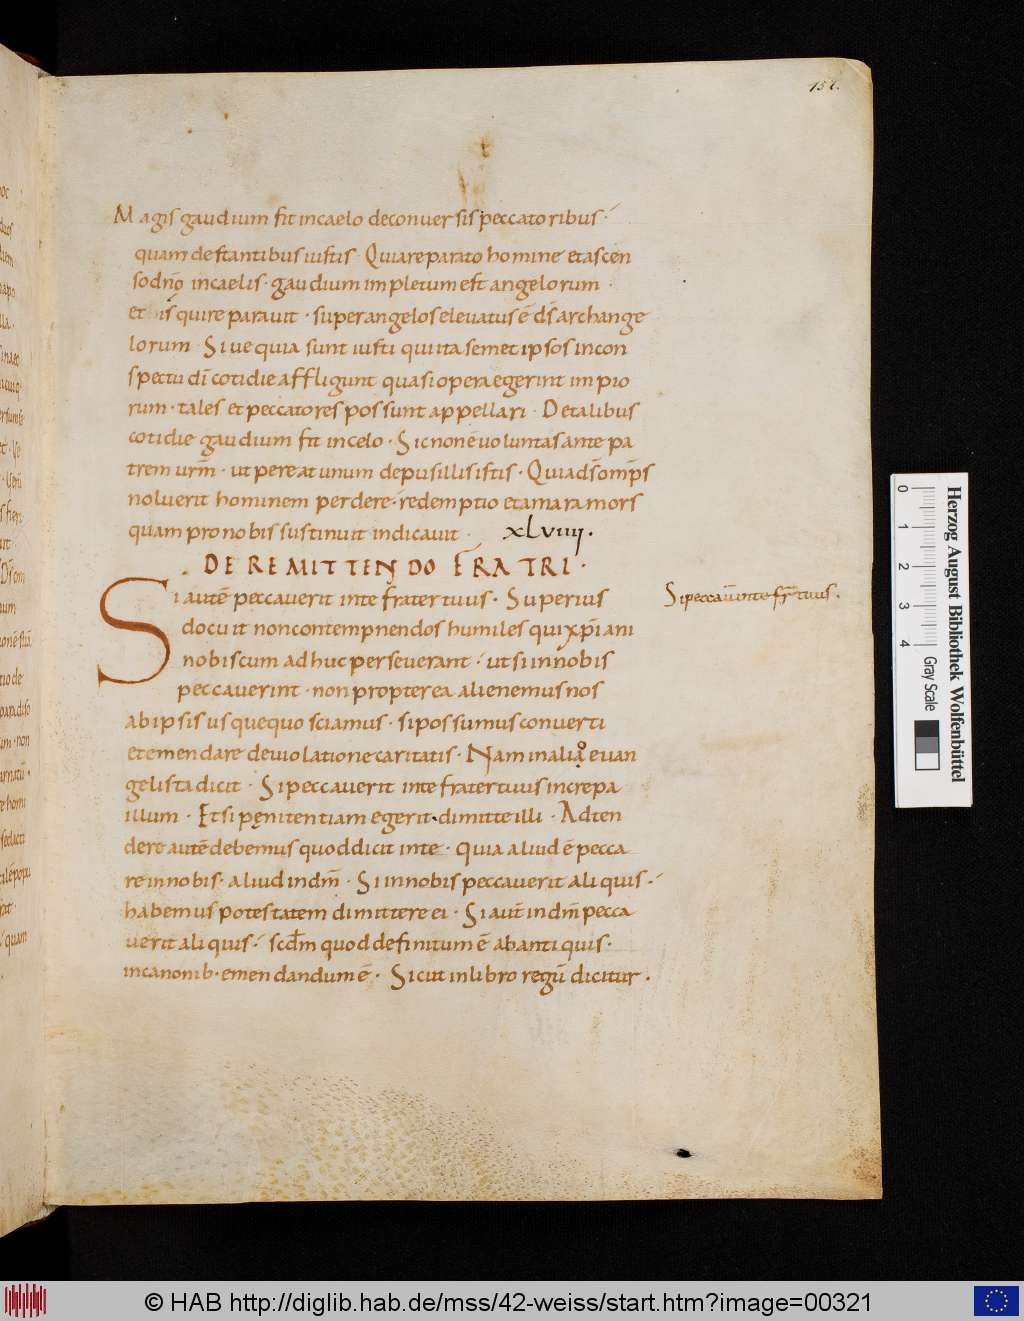 157.
Magis gaudium fit in caelo de conversis peccatoribus ·
quam de stantibus iustis · Quia reparato homine et ascen
so dn̄o in caelis · gaudium impletum est angelorum ·
et is qui reparavit · super angelos elevatus ē d̄s archange
lorum · Sive quia sunt iusti qui ita semet ipsos in con
spectu dī cotidie affligunt quasi opera egerint impio
rum · tales et peccatores possunt appellari · De talibus
cotidie gaudium fit in celo · Sic non ē voluntas ante pa
trem urm̄ · ut pereat unum de pusillis istis · Quia d̄s omp̄s
noluerit hominem perdere · redemptio et amara mors
quam pro nobis sustinuit indicavit · xLviiij ·
DE REMITTENDO FRATRI ·
Si autē peccaverit in te frater tuus · Superius
docuit non contempnendos humiles qui xp̄iani
nobiscum adhuc perseverant · ut si in nobis
peccaverint · non propterea alienemus nos
ab ipsis usquequo sciamus · si possumus converti
et emendare de violatione caritatis · Nam in alio evan
gelista dicit · Si peccaverit in te frater tuus increpa
illum · Et si pęnitentiam egerit · dimitte illi · Adten
dere autē debemus quod dicit in te · Quia aliud ē pecca
re in nobis · aliud in dm̄ · Si in nobis peccaverit aliquis ·
habemus potestatem dimittere ei · Si aut̄ in dm̄ pecca
verit aliquis · scd̄m quod definitum ē ab antiquis ·
in canonib · emendandum ē · Sicut in libro regū dicitur ·
Si peccav̄ in te fr̄ tuus ·
0 1 2 3 4
Gray Scale
Herzog August Bibliothek Wolfenbüttel
© HAB http://diglib.hab.de/mss/42-weiss/start.htm?image=00321